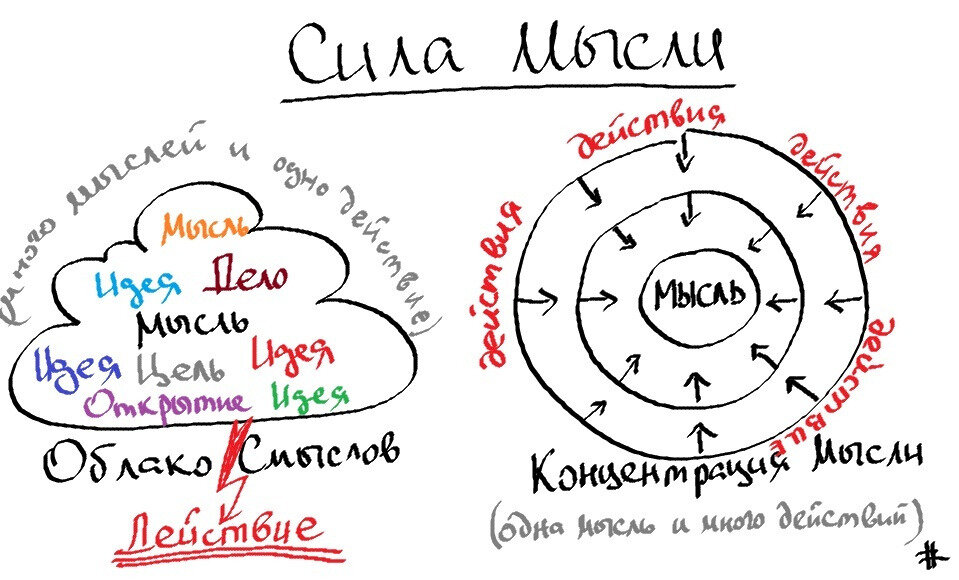 Сила Мысли
(много мыслей и одно действие)
Мысль
Идея Дело
Мысль
Идея Цель Идея
Открытие Идея
Облако Смыслов
Действие
действия
действия
действия
действие
МЫСЛЬ
Концентрация Мысли
(одна мысль и много действий)
#